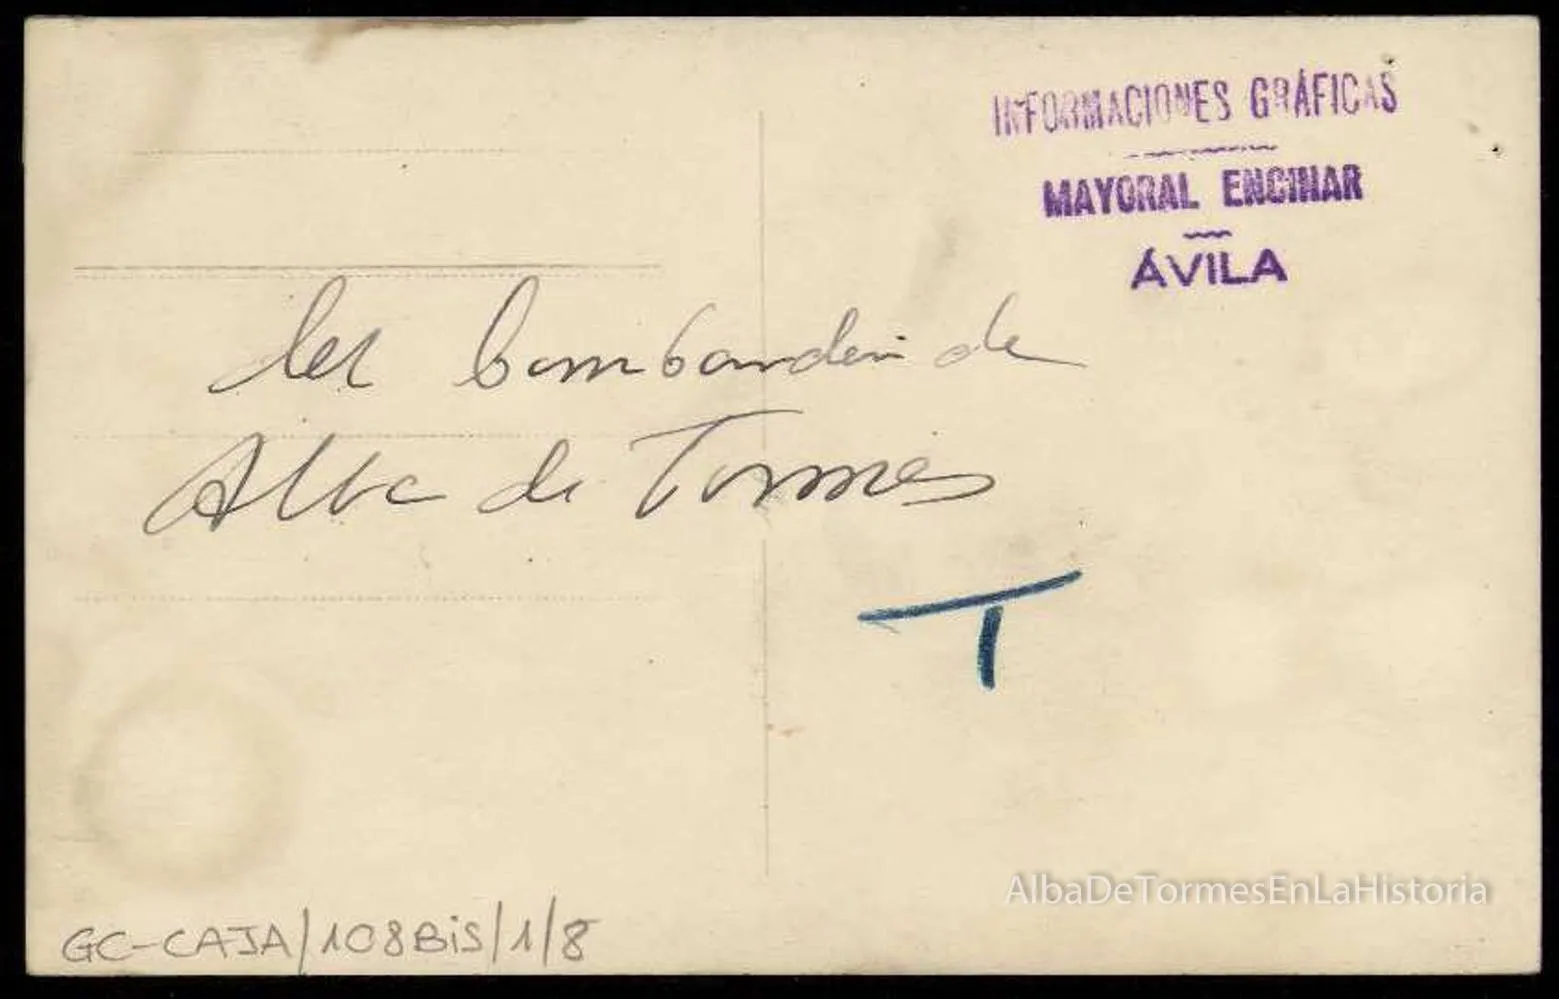 INFORMACIONES GRÁFICAS
MAYORAL ENCINAR
ÁVILA
de
Alba de Tormes
T
AlbaDeTormesEnLaHistoria
GC-CAJA/108Bis/1/8